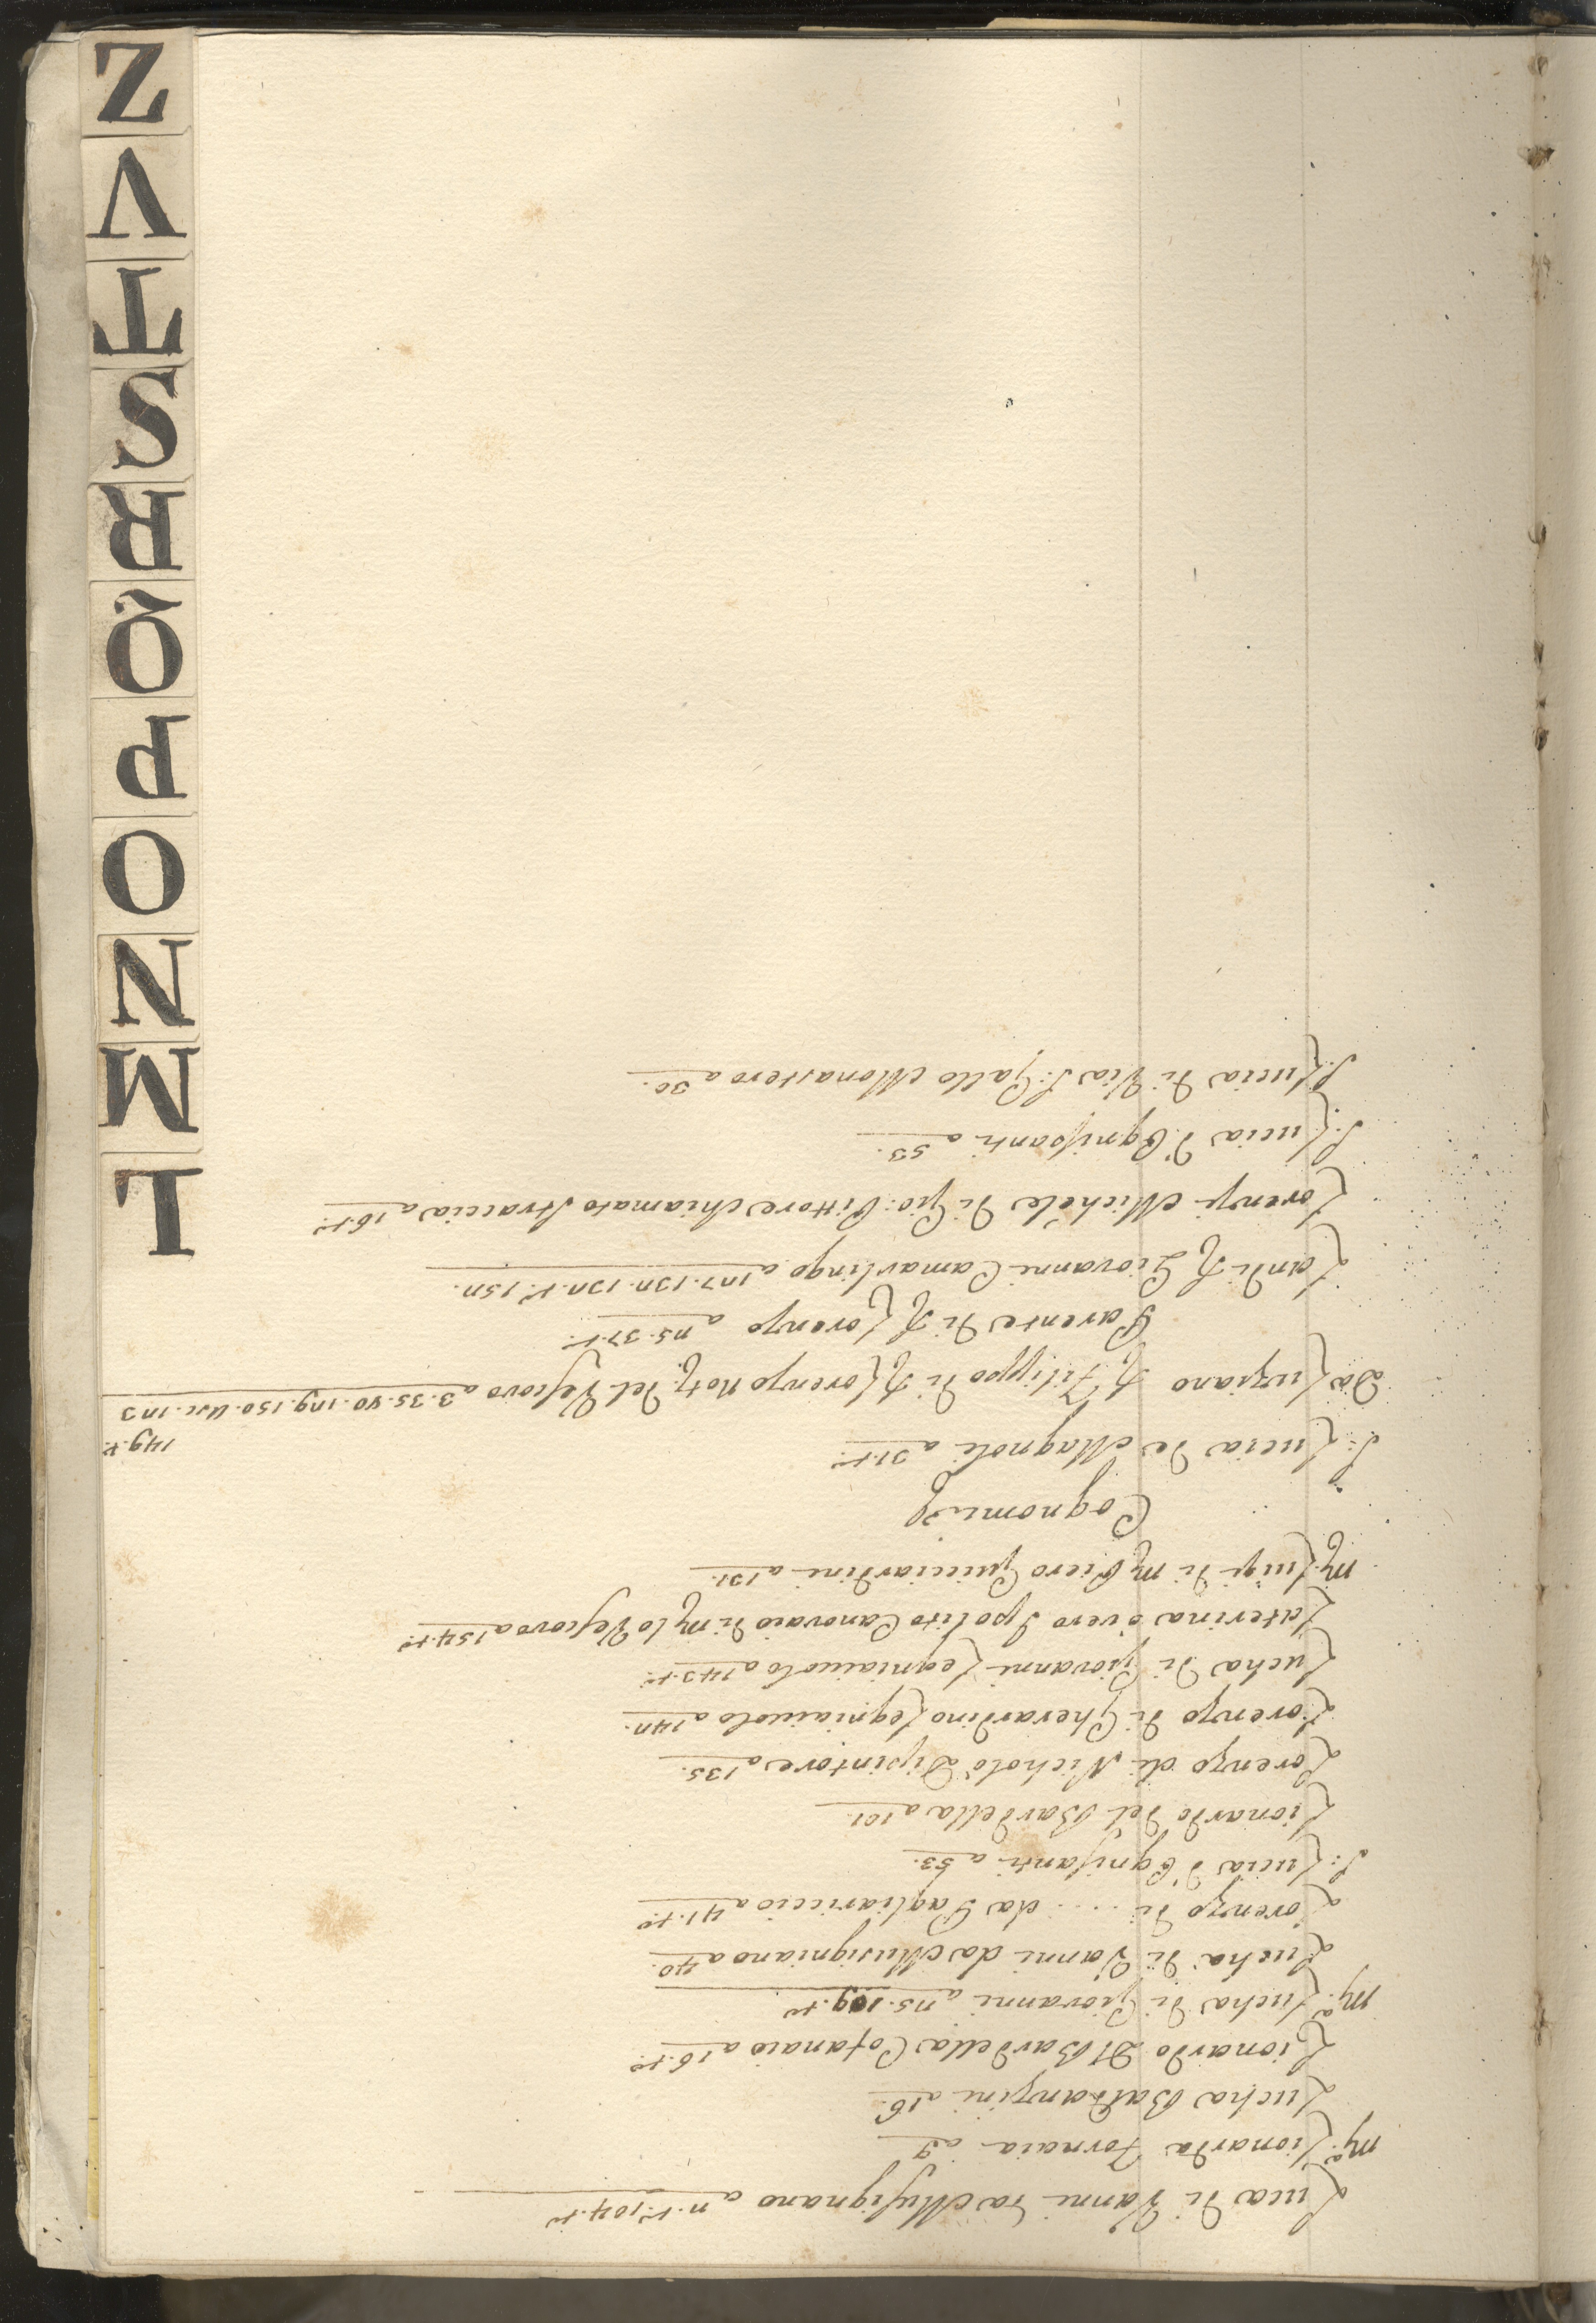 Luca di Vanni da Musignano a n.t.º 104.t.º
M.ª Lionarda Fornaia a 9
Lucha Baldanzini a 16.
Lionardo Dl Bardella Cofanaio a 16.t.º
M.ª Lucha di Giovanni a 25. 109.t.º
Lucha di Vanni da Musigniano a 40.
Lorenzo di .... da Pagliariccio a 41.t.º
S: Lucia d'Ognisanti a 53.
Lionardo del Bardella a 101.
Lorenzo di Nicholò Dipintore a 135.
Lorenzo di Gherardino Legniaiuolo a 142.
Lucha di Giovanni Legniaiuolo a 143.t.º
Laterina ò vero Ipolito Canovaio di M. lo Vescovo a 154.t.º
M. Luigi di M. Piero Guicciardini a 131.
Cognomi
S: Lucia de Magnoli a 31.t.º
149.t.
Da Luziano S. Filippo di S. Lorenzo Not. del Vescovo a 3. 35. 40. 109. 150.
Parente di S. Lorenzo a 25. 37.t.º
Landi S. Giovanni Camarlingo a 127. 132. 132.t.º 152.
Lorenzi Michele di Gio: Pittore chiamato Straccia a 16.t.º
S: Lucia d'Ognisanti a 53.
S: Lucia di Via S: Gallo Monastero a 30.
L
M
N
O
P
Q
R
S
T
V
Z